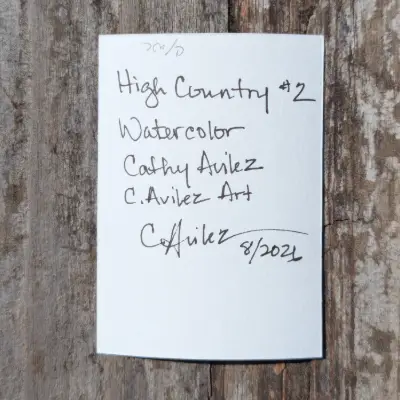 High Country #2
Watercolor
Cathy Avilez
C. Avilez Art
C Avilez
8/2021